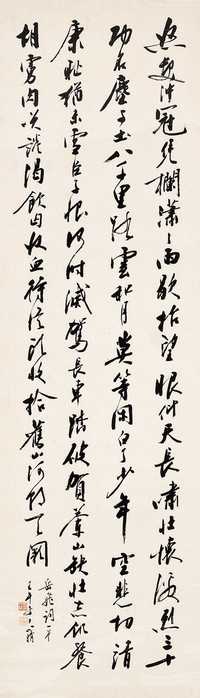 怒髮沖冠凭欄瀟々雨歇抬望眼仰天長嘯壯懷激烈三十
功名塵与土八千里路雲和月莫等閑白了少年空悲切靖
康恥猶未雪臣子恨何時滅駕長車踏破賀蘭山缺壯志飢餐
胡虜肉笑談渴飲匈奴血待從頭收拾舊山河朝天闕
岳飛詞